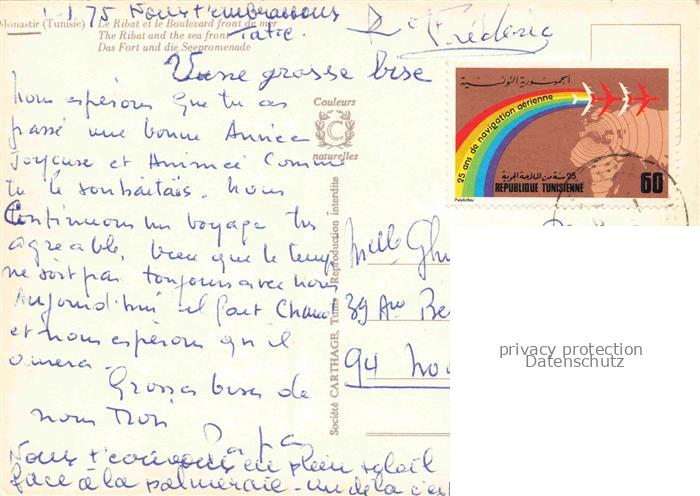 1-1-75 Nous t'embrassons
Tatie
Frédéric
Monastir (Tunisie) Le Ribat et le Boulevard front de mer
The Ribat and the sea front
Das Fort und die Seepromenade
Une grosse bise
Nous espérons que tu as
passé une bonne Année
Joyeuse et Animée comme
tu le souhaitais. Nous
Continuons un voyage très
agréable, bien que le temps
ne soit pas toujours avec nous
Aujourd'hui il fait Chaud
et nous espérons qu'il
durera.
Grosses bises de
nous Trois
Papa
Nous t'écrivons en plein soleil
face à la palmeraie - un de là c'es
Couleurs
C
naturelles
Société CARTHAGE, Tunis - Reproduction interdite
الجمهورية التونسية
25 ans de navigation aérienne
25 سنة من الملاحة الجوية
REPUBLIQUE TUNISIENNE
60
Melle
39 Av
94
privacy protection
Datenschutz